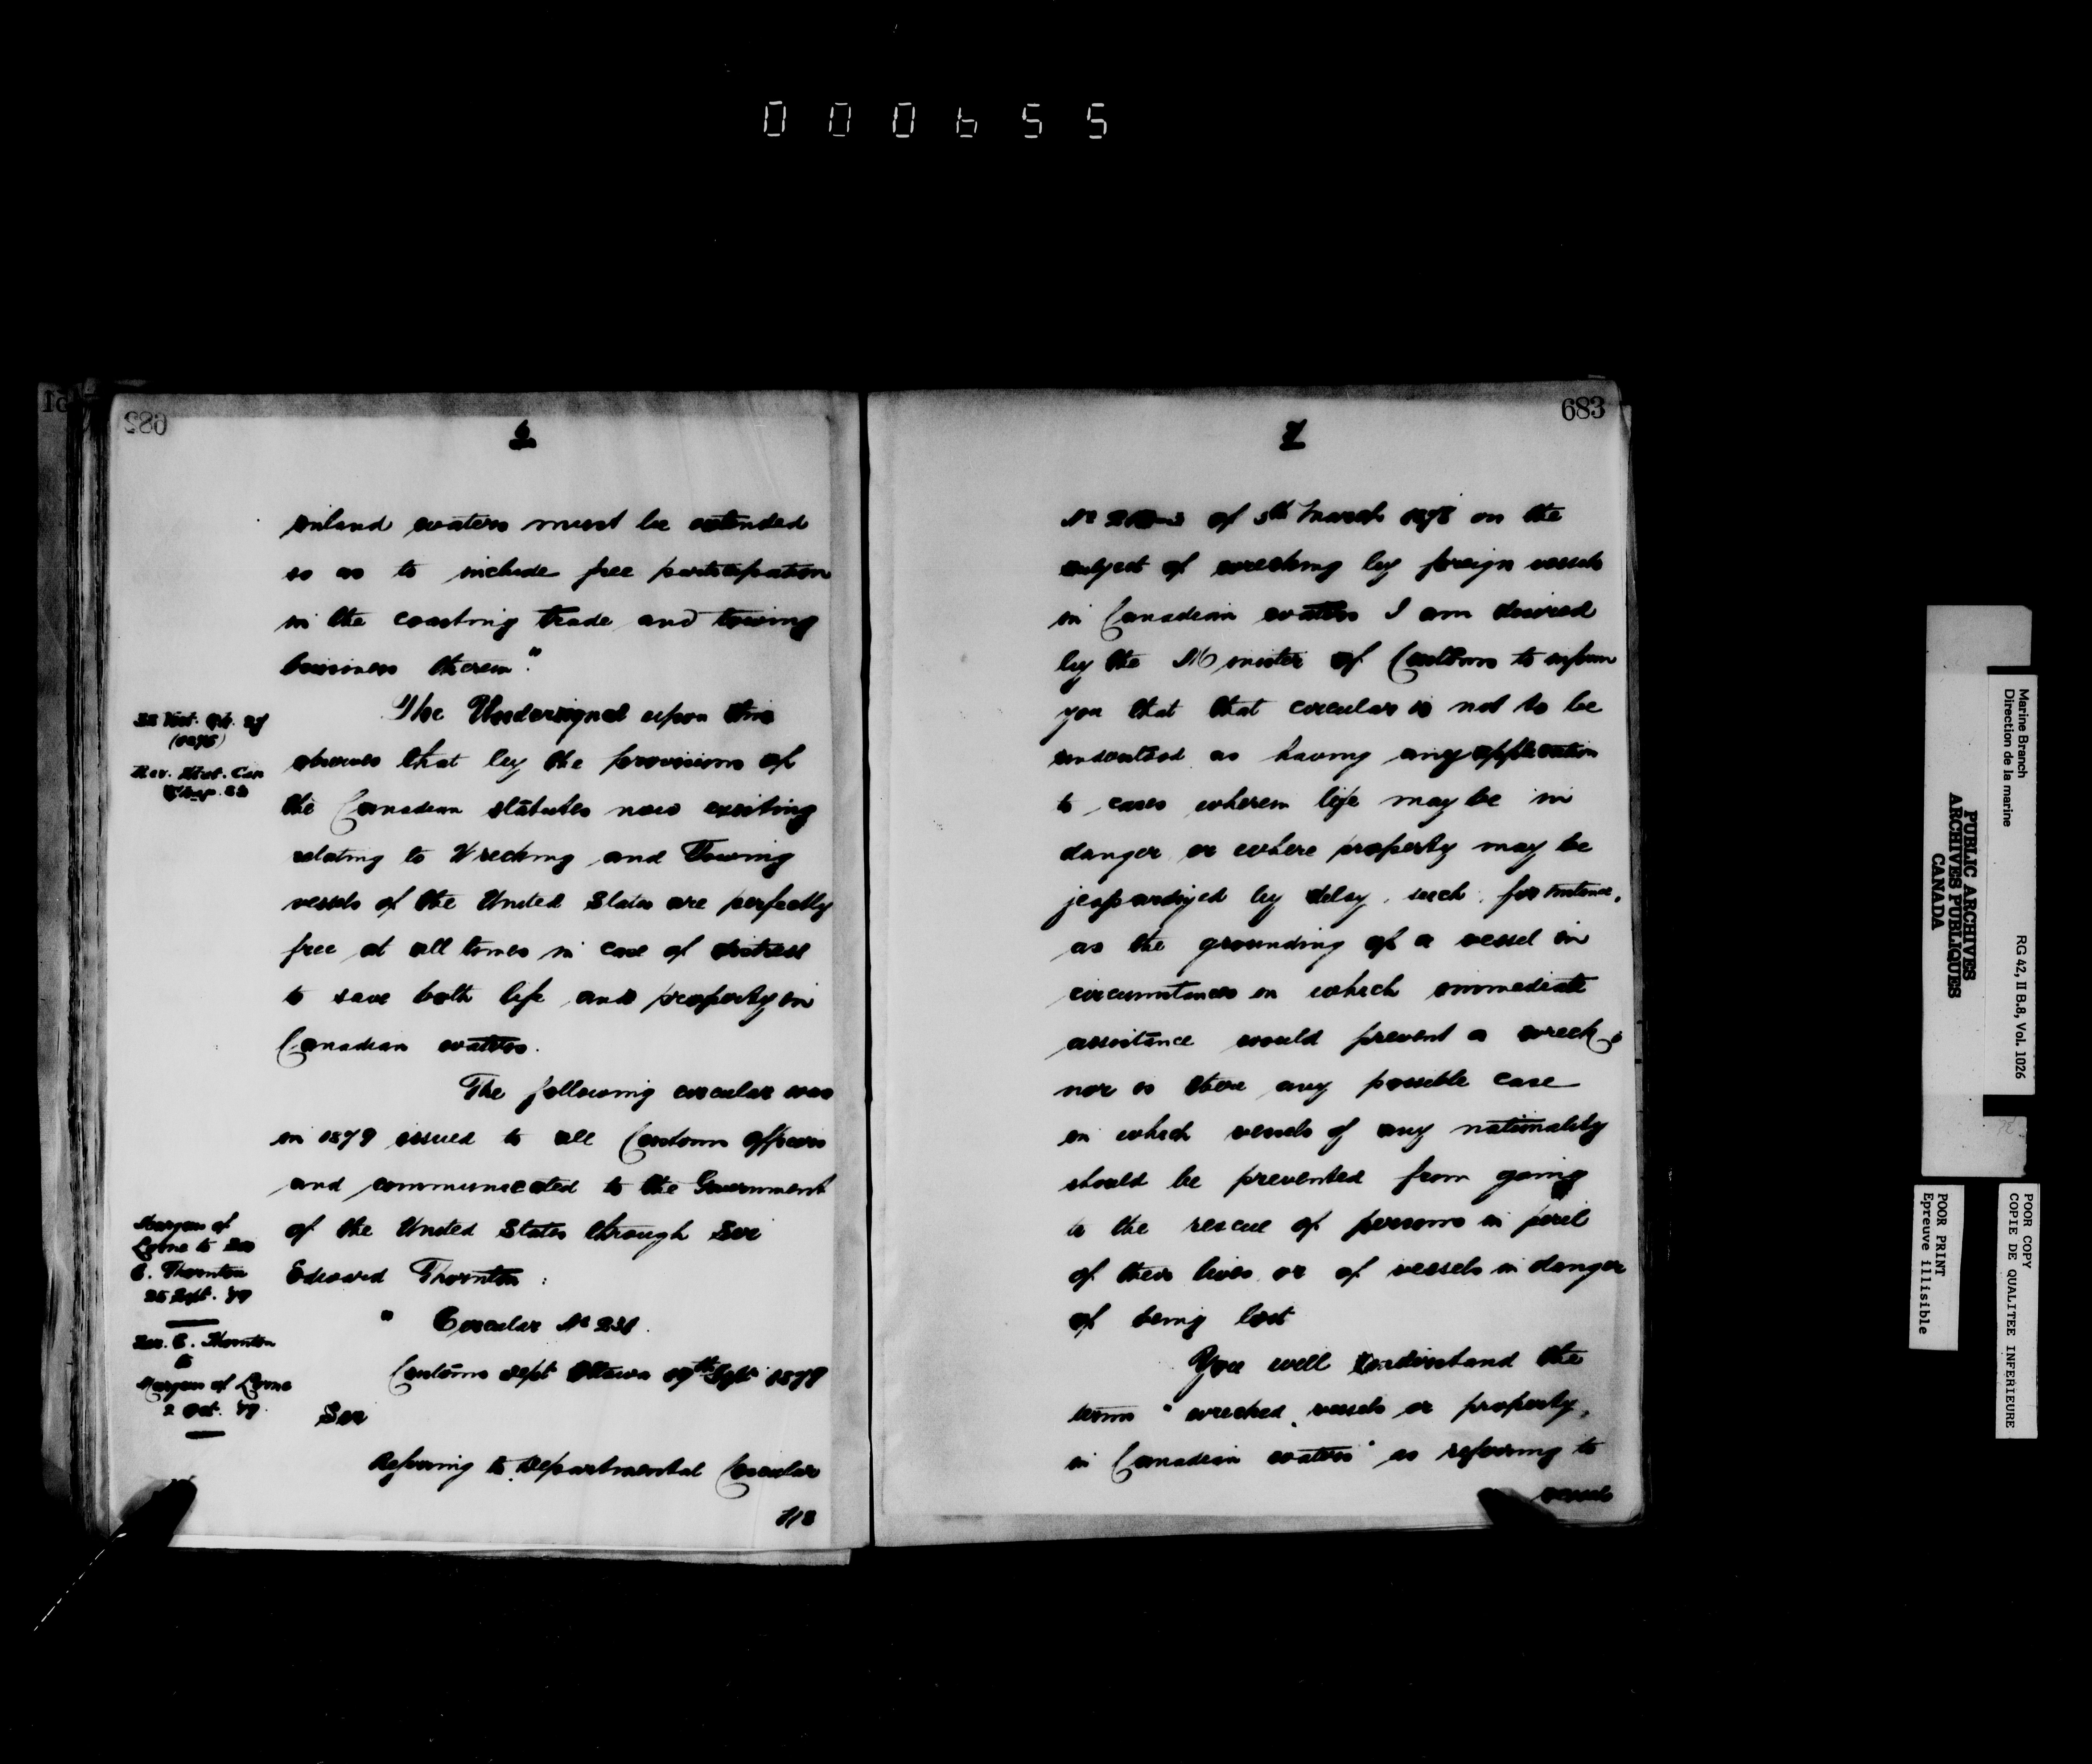 000655
682
6
inland waters must be extended
so as to include free participation
in the coasting trade and towing
business therein."
The Undersigned upon this
observes that by the provisions of
the Canadian statutes now existing
relating to Wrecking and Towing
vessels of the United States are perfectly
free at all times in case of distress
to save both life and property in
Canadian waters.
The following circular was
in 1879 issued to all Customs officers
and communicated to the Government
of the United States through Sir
Edward Thornton :
" Circular No 231.
Customs Dept Ottawa 19th Sept 1879
Sir
Referring to Departmental Circular
Vict. Ch.
Rev. Stat. Can
Chap.
Marquis of
Lorne to Sir
E. Thornton
25 Sept. '79
Sir. E. Thornton
to
Marquis of Lorne
2 Oct. '79.
683
7
No of 5th March 1878 on the
subject of wrecking by foreign vessels
in Canadian waters I am desired
by the Minister of Customs to inform
you that that circular is not to be
understood as having any application
to cases wherein life may be in
danger or where property may be
jeopardized by delay, such, for instance,
as the grounding of a vessel in
circumstances in which immediate
assistance would prevent a wreck;
nor is there any possible case
in which vessels of any nationality
should be prevented from going
to the rescue of persons in peril
of their lives or of vessels in danger
of being lost
You will understand the
terms "wrecked vessels or property,
in Canadian waters" as referring to
vessels
Marine Branch
Direction de la marine
RG 42, II B.8, Vol. 1026
PUBLIC ARCHIVES
ARCHIVES PUBLIQUES
CANADA
POOR COPY
COPIE DE QUALITEE INFERIEURE
POOR PRINT
Epreuve illisible